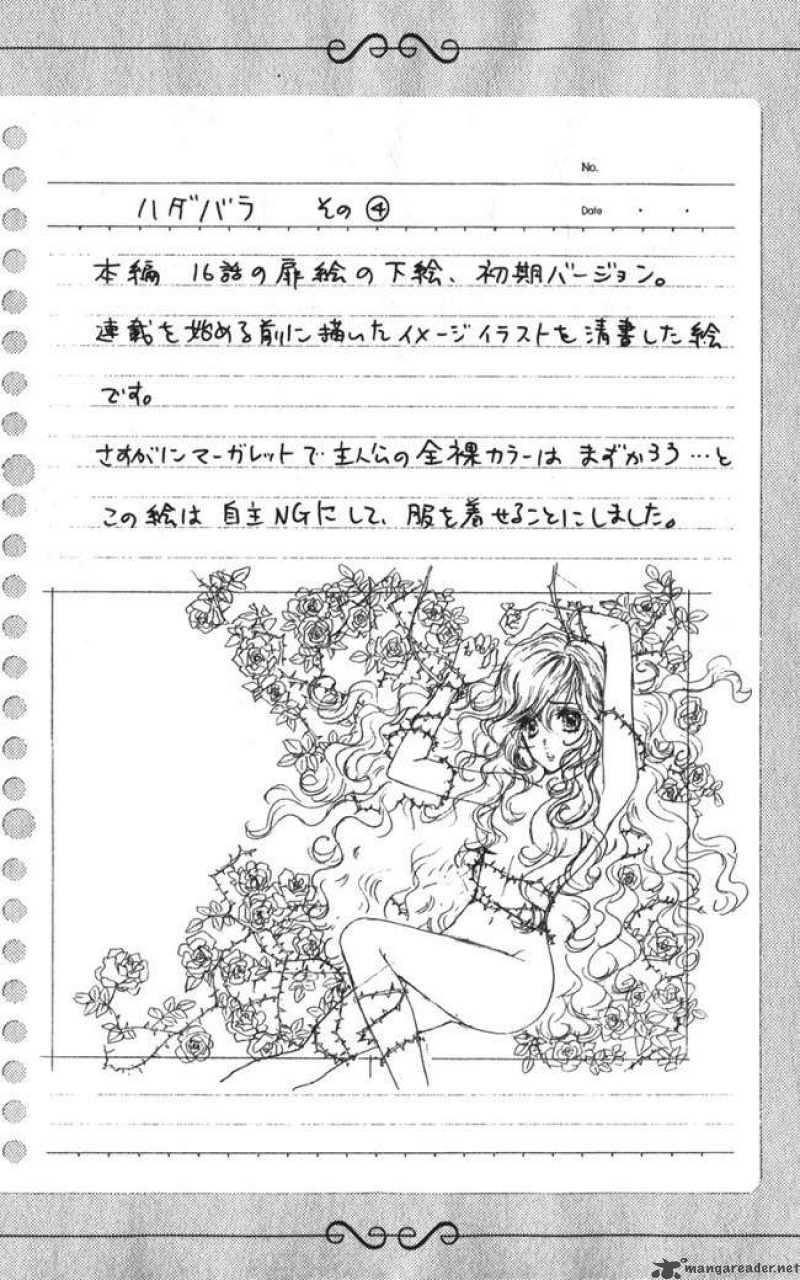 No.
ハダバラ その④
Date ・ ・
本編 16話の扉絵の下絵、初期バージョン。
連載を始める前に描いたイメージイラストを清書した絵
です。
さすがにマーガレットで主人公の全裸カラーは まずかろう…と
この絵は 自主NGにして、服を着せることにしました。
mangareader.net